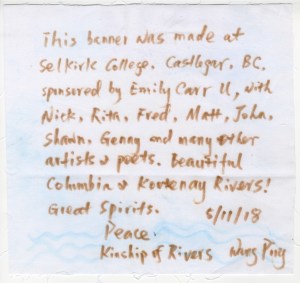 This banner was made at
Selkirk College. Castlegar, BC.
sponsored by Emily Carr U, with
Nick, Rita, Fred, Matt, John,
Shawn, Genny and many other
artists & poets. Beautiful
Columbia & Kootenay Rivers!
Great Spirits. 5/11/18
Peace.
Kinship of Rivers Wang Ping